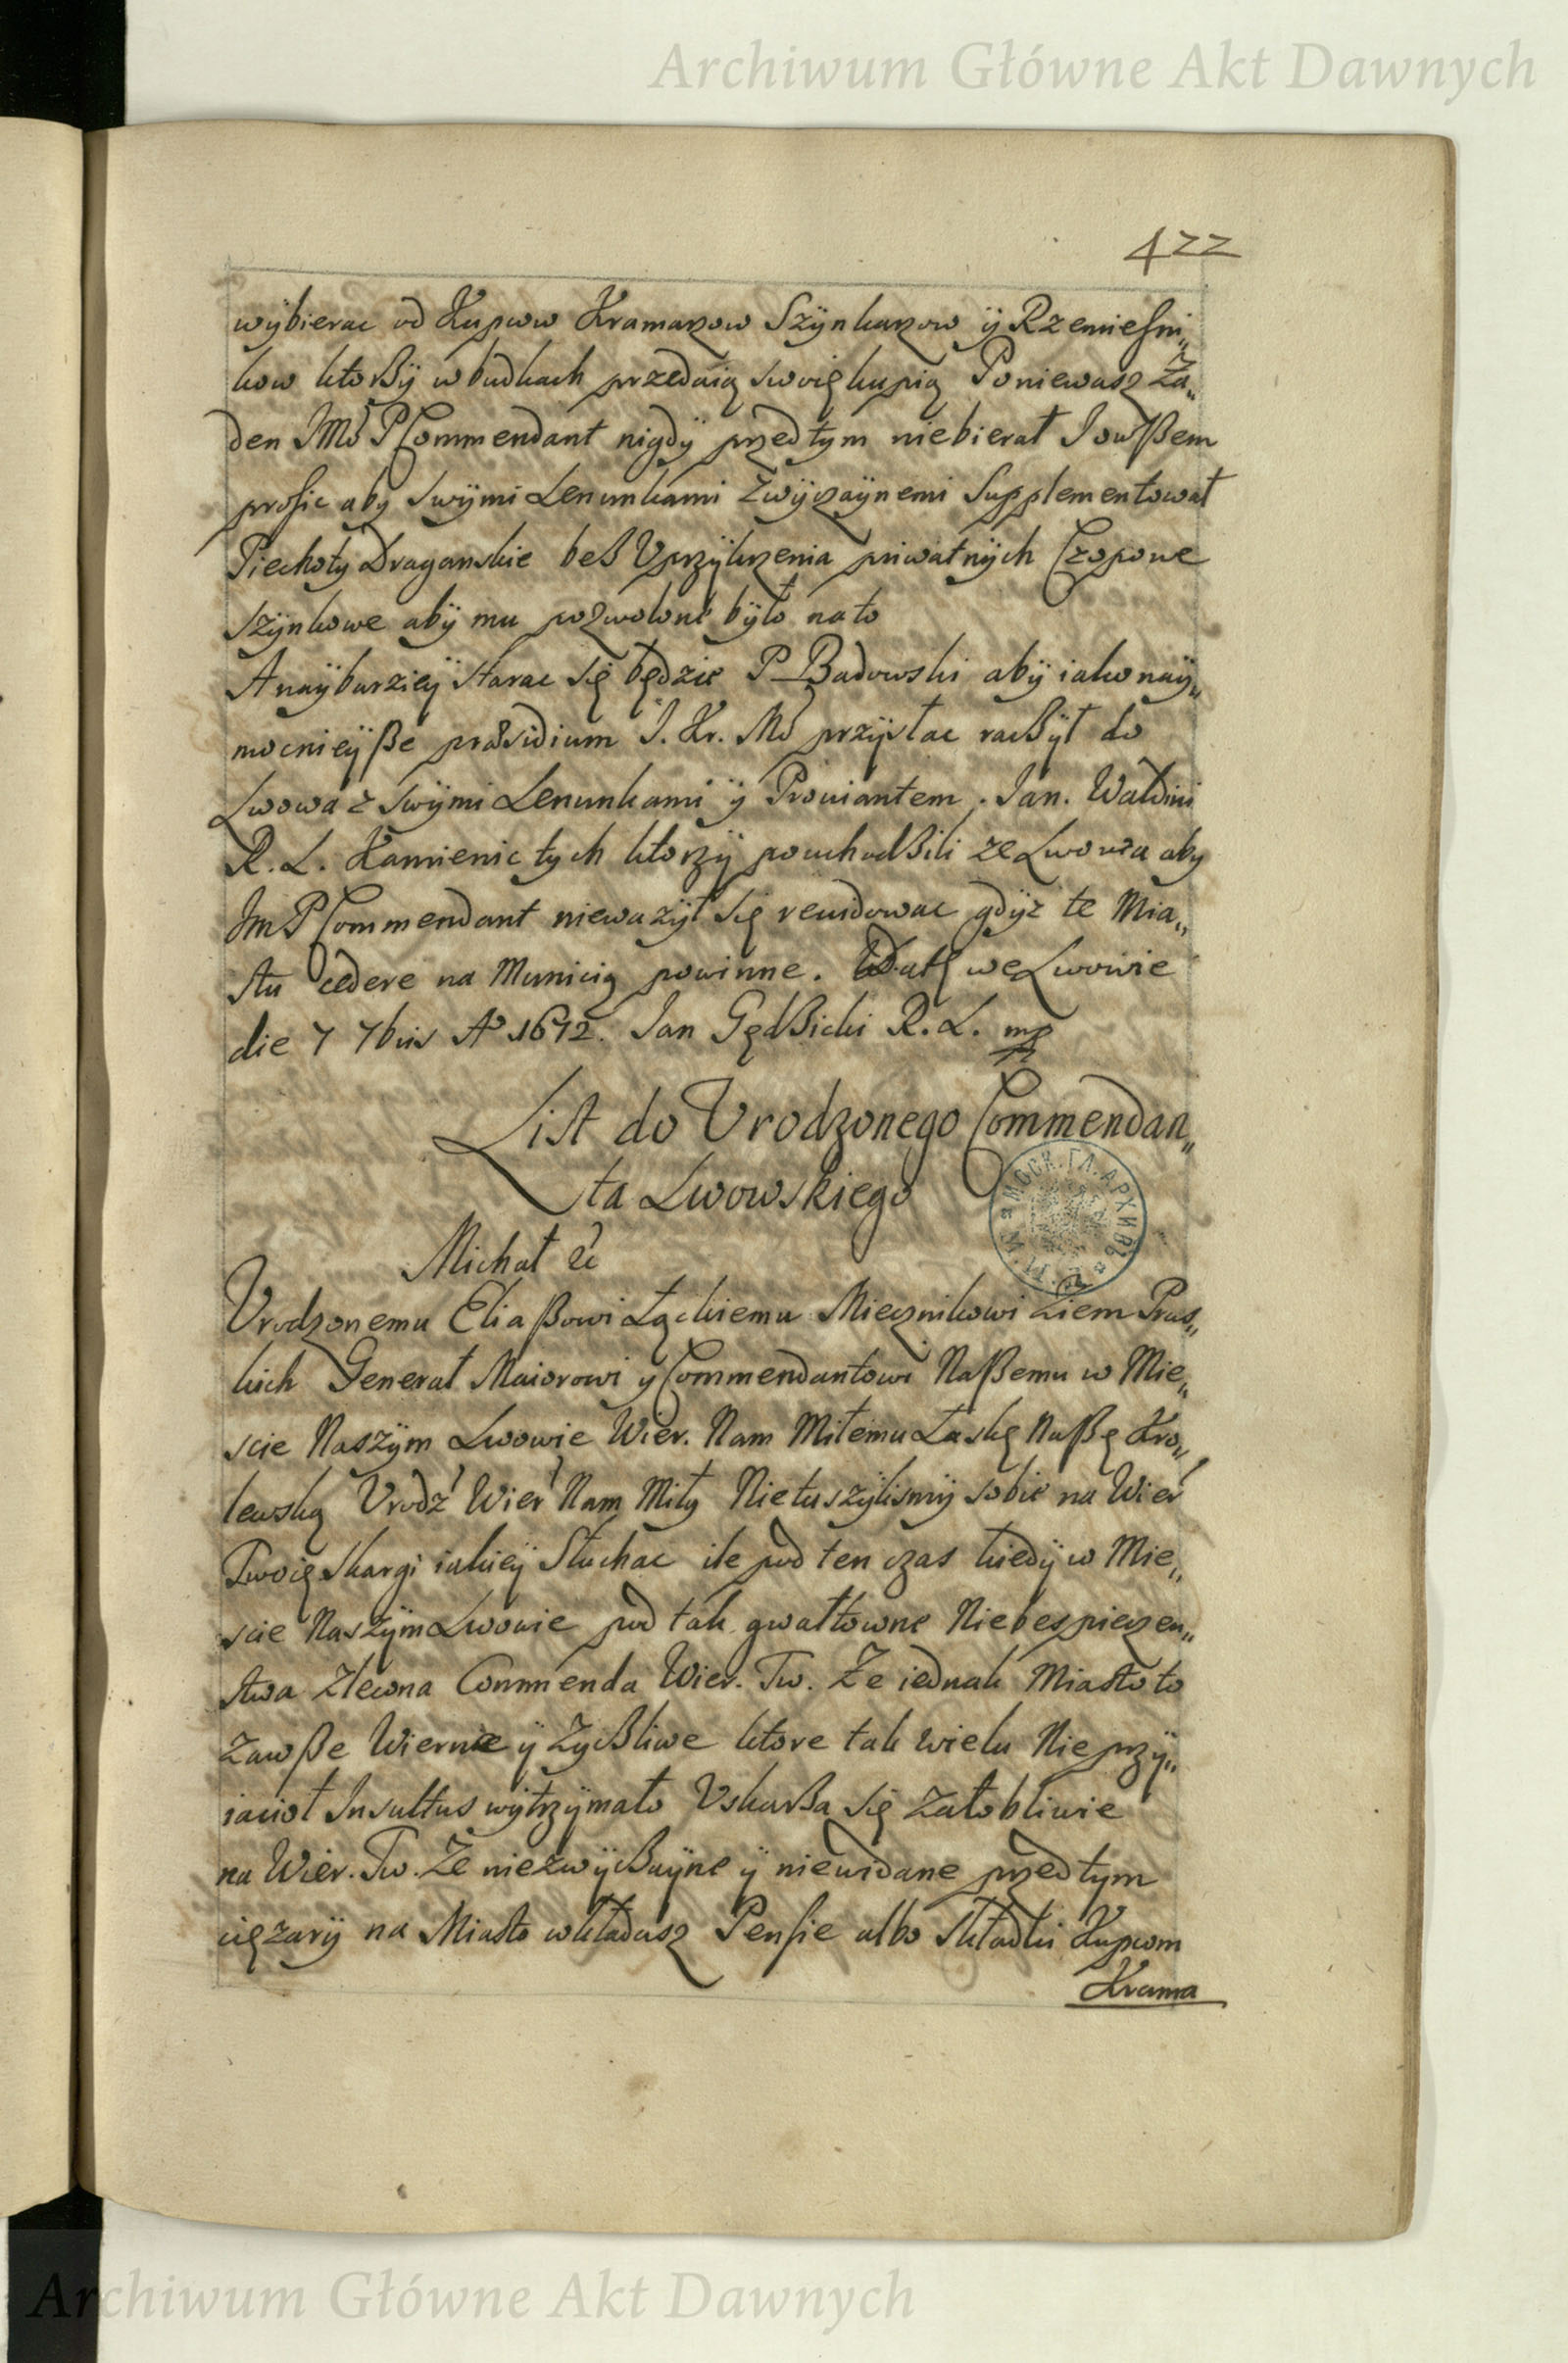 Archiwum Główne Akt Dawnych
422
wÿbierac od Kupcow Kramarzow Szÿnkarzow ÿ Rzemiesni„
kow ktorßÿ w budkach przedaią swoię kupią Poniewasz Ża„
den JMć P Commendant nigdÿ przedtym niebierał I owßem
prosic aby swÿmi Lenunkami Zwÿczaÿnemi Supplementował
Piechoty Draganskie beß Vprzÿkrzenia priwatnÿch Czopowe
szÿnkowe abÿ mu pozwolone bÿło nato
A naÿbarzieÿ starac się będzie P Badowski abÿ iako naÿ„
mocnieÿße præsidium J. Kr. Mć przÿsłac racßÿł do
Lwowa z swÿmi Lenunkami ÿ Prowiantem. Jan. Waldini
R. L. Kamienic tych ktorzÿ pouchodßili ze Lwowa aby
Jm P Commendant nieważÿł się rewidowac gdÿż te Mia„
stu cedere na Municią powinne. Dat we Lwowie
die 7 7bris Aº 1672. Jan Gędßicki R. L. mp
List do Vrodzonego Commendan„
ta Lwowskiego
Michał &c
Vrodzonemu Eliaßowi Łąckiemu Miecznikowi Ziem Prus„
kich Generał Maiorowi y Commendantowi Naßemu w Mie„
scie Naszÿm Lwowie Wier. Nam Miłemu Łaskę Naßę Kro„
lewską Vrodz Wier Nam Miły Nietuszÿlismÿ sobie na Wier
Twoię skargi iakieÿ Słuchac ile pod ten czas kiedÿ w Mie„
scie Naszÿm Lwowie pod tak gwałtowne Niebespieczen„
stwa Zlecona Commenda Wier. Tw. Ze iednak Miasto to
Zawße Wierne ÿ Zycßliwe ktore tak wielu Nieprzÿ„
iaciol Insultus wÿtrzÿmało Vskarßa się Załobliwie
na Wier. Tw. Ze niezwÿcßaÿne ÿ niewidane przedtym
ciężarÿ na Miasto wkładasz Pensie albo składki Kupcom
Krama
МОСК. ГЛ. АРХИВЪ
Archiwum Główne Akt Dawnych